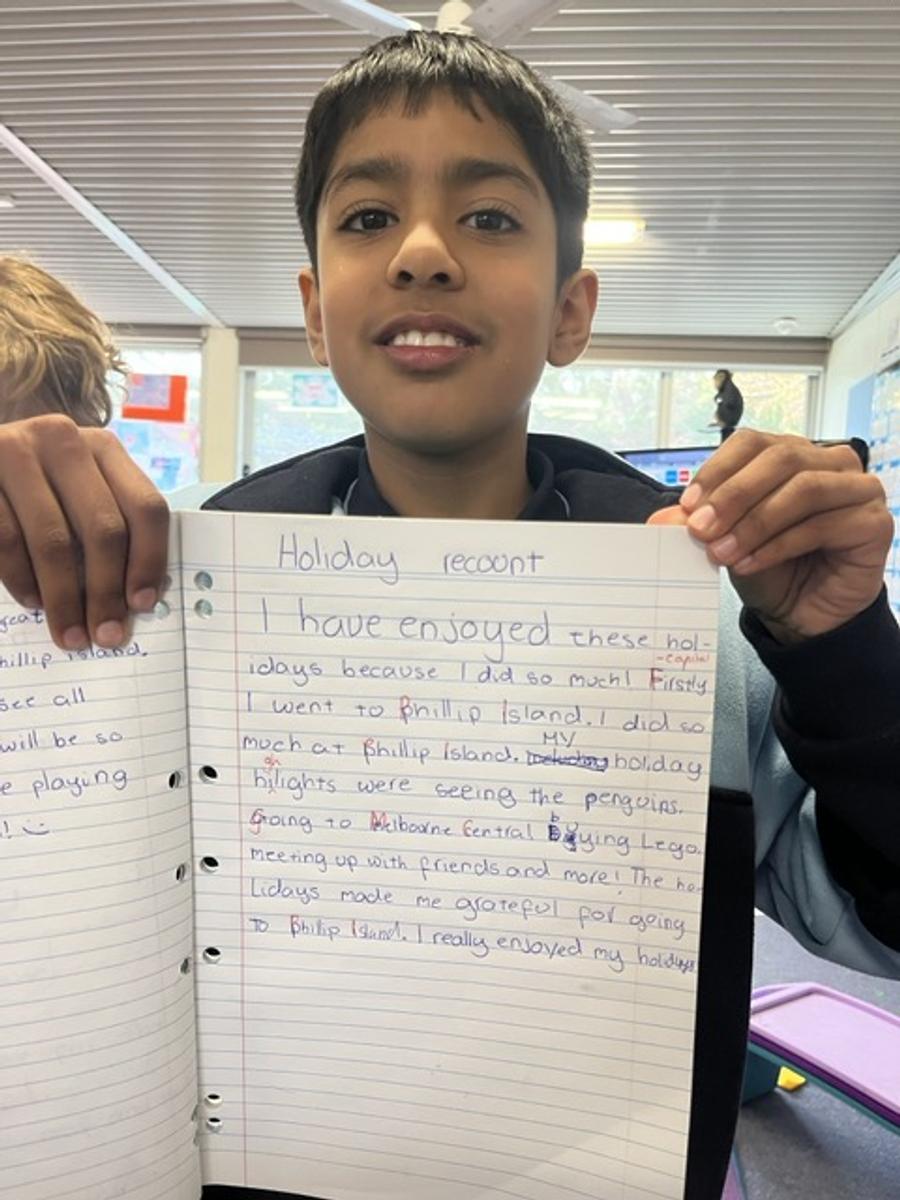 great
hillip island.
see all
will be so
e playing
! :)
Holiday recount
I have enjoyed these hol-
-capital
idays because I did so much! Firstly
I went to Phillip Island. I did so
MY
much at Phillip Island. Including holiday
gh
hilights were seeing the penguins.
b
Going to Melbourne Central Buying Lego.
meeting up with friends and more! The ho-
Lidays made me grateful for going
To Phillip Island. I really enjoyed my holidays